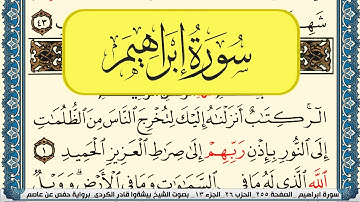 شَهِي
٤٣
سُورَةُ إِبْرَاهِيمَ
الٓرۚ كِتَٰبٌ أَنزَلْنَٰهُ إِلَيْكَ لِتُخْرِجَ ٱلنَّاسَ مِنَ ٱلظُّلُمَٰتِ
إِلَى ٱلنُّورِ بِإِذْنِ رَبِّهِمْ إِلَىٰ صِرَٰطِ ٱلْعَزِيزِ ٱلْحَمِيدِ ١
ٱللَّهِ ٱلَّذِي لَهُۥ مَا فِي ٱلسَّمَٰوَٰتِ وَمَا فِي ٱلْأَرْضِۗ وَوَيْلٌ
سورة ابراهيم _ الصفحة ٢٥٥ _ الحزب ٢٦ _ الجزء ١٣ _ بصوت الشيخ بيشةوا قادر الكردي _ برواية حفص عن عاصم